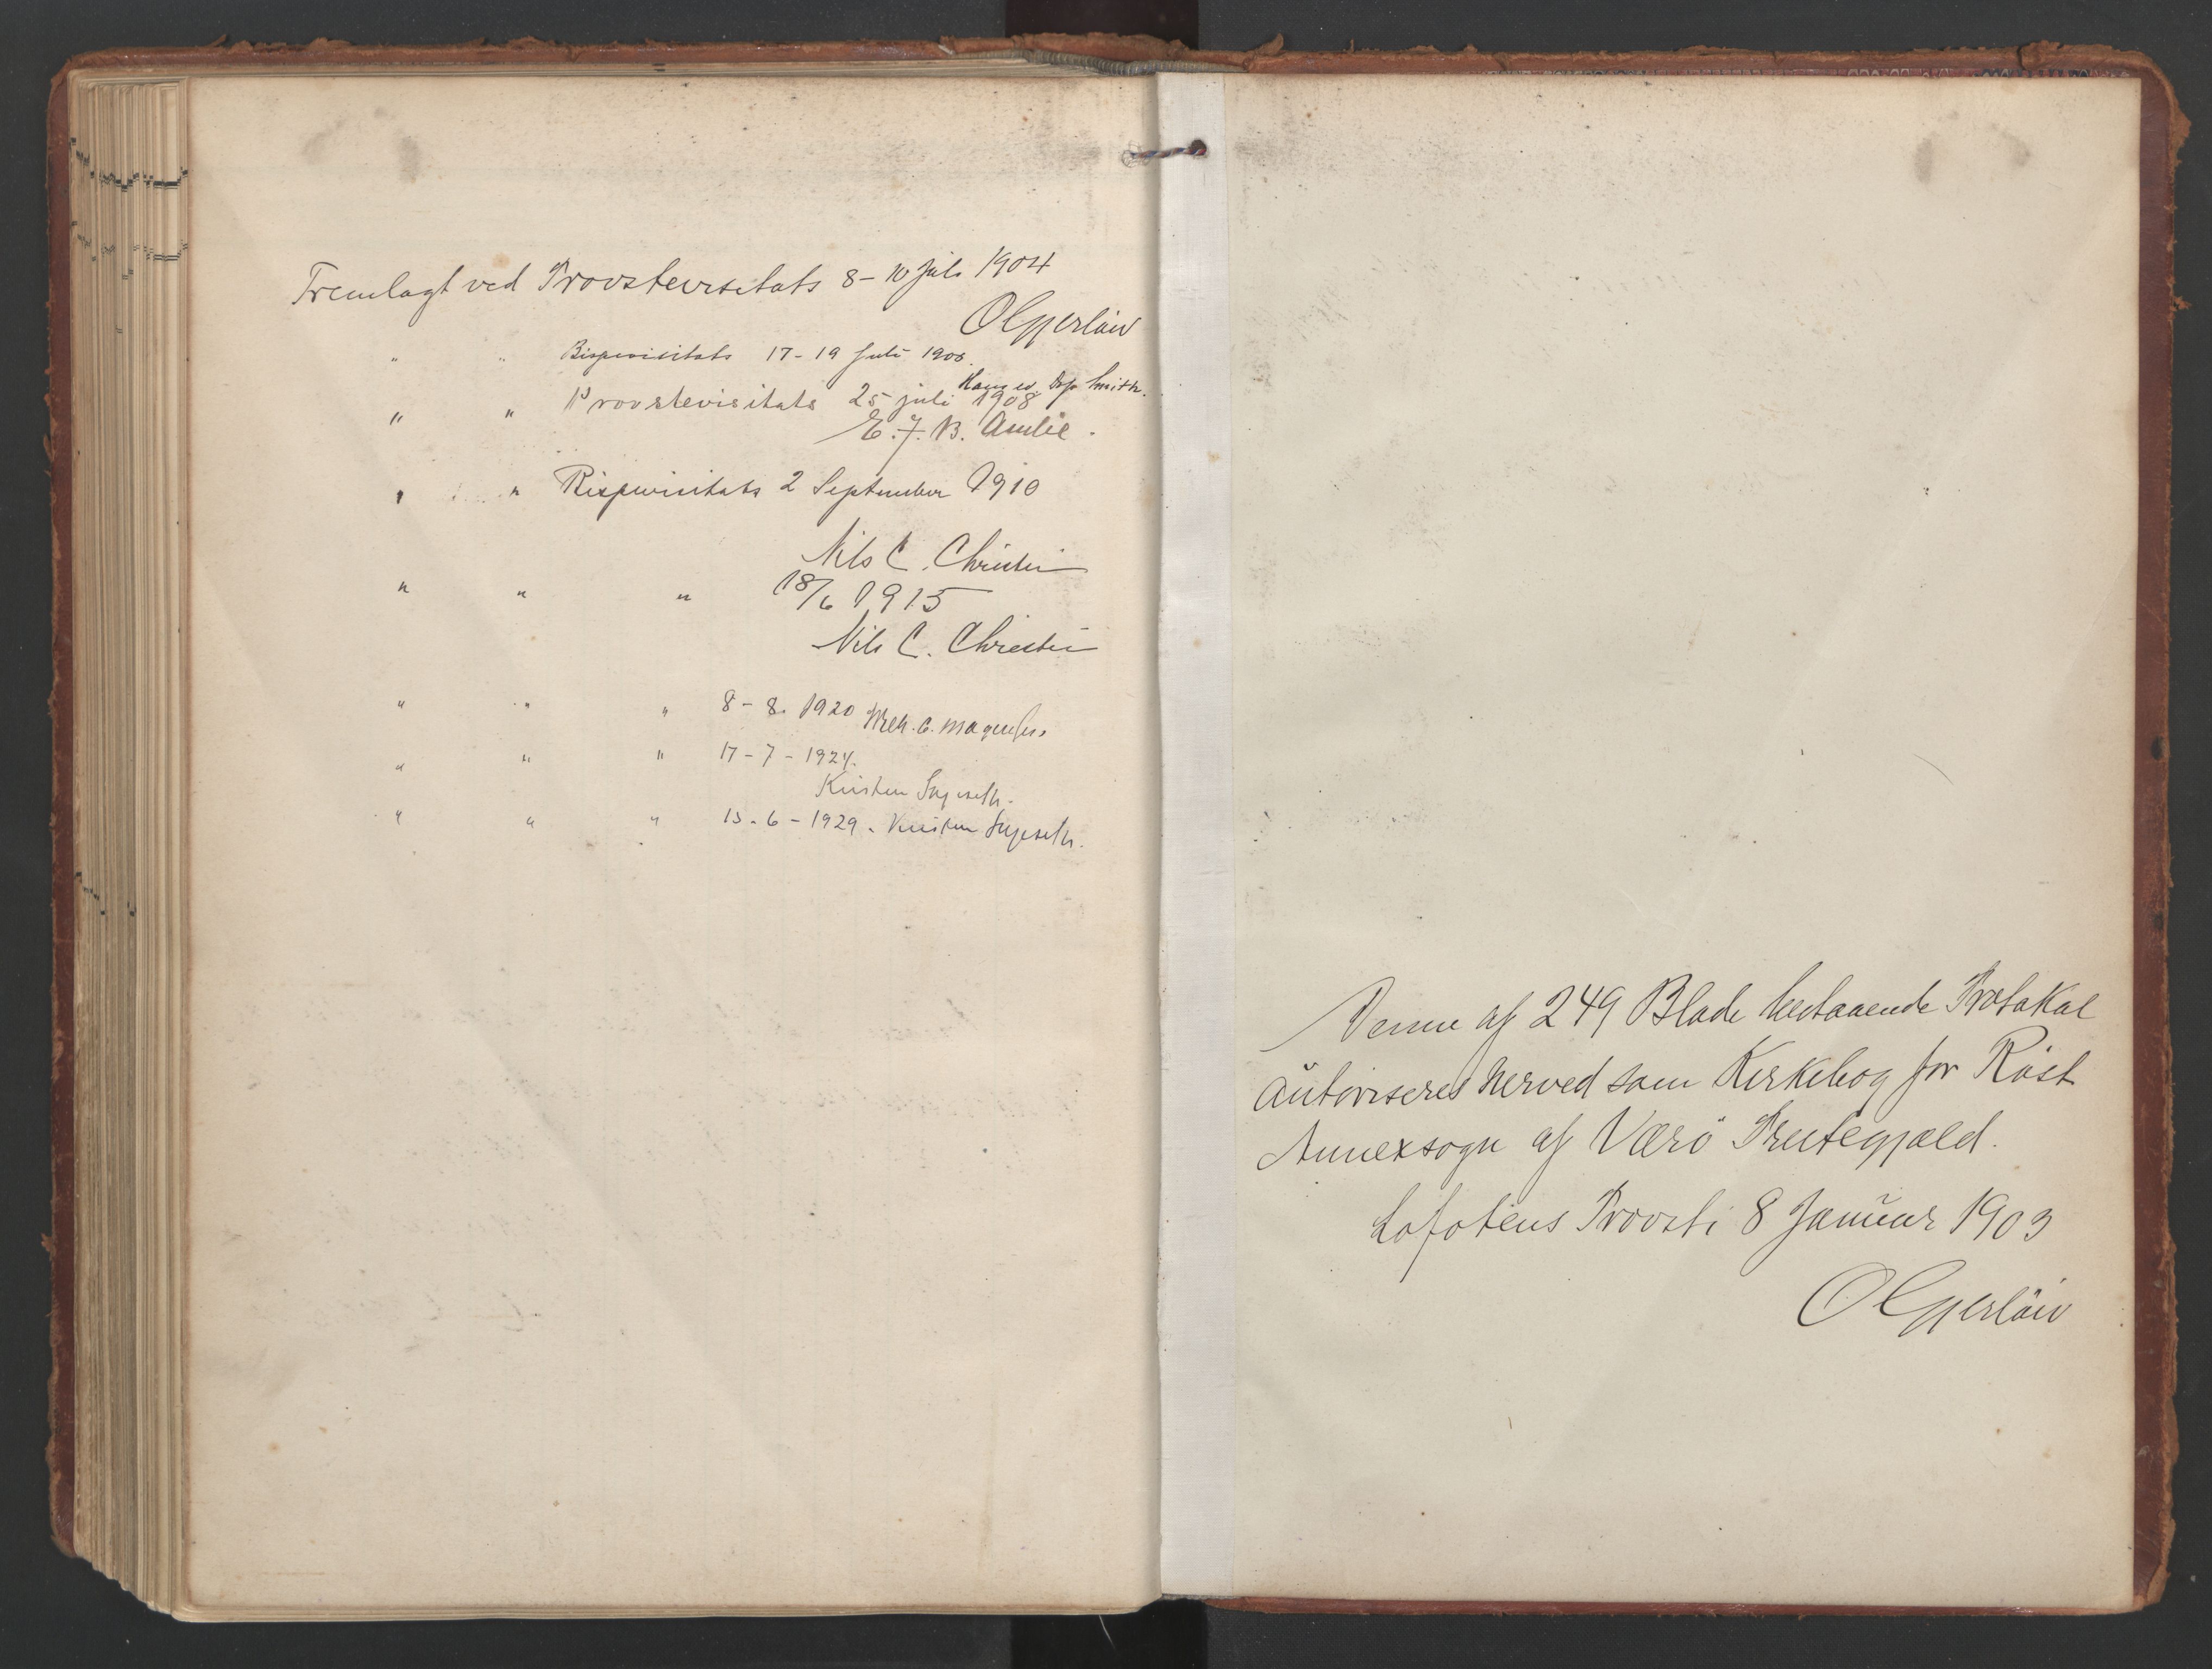 Fremlagt ved Provstevisitats 8-10 Juli 1904
OGjerløw
" " Bispevisitats 17-19 Juli 190
" " Provstevisitats 25 juli 1908
E. F. B. Amlie.
" " Bispevisitats 2 September 1910
Nils C.
" " " 18/6 1915
Nils C.
" " " 8-8. 1920
" " " 17-7-1924.
Kristen
" " " 13-6-1929. Kristen
Denne af 249 Blade bestaaende Protokol
Autoriseres herved som Kirkebog for Röst
Annexsogn af Værö Prestegjæld.
Lofotens Provsti 8 Januar 1903
OGjerlöw